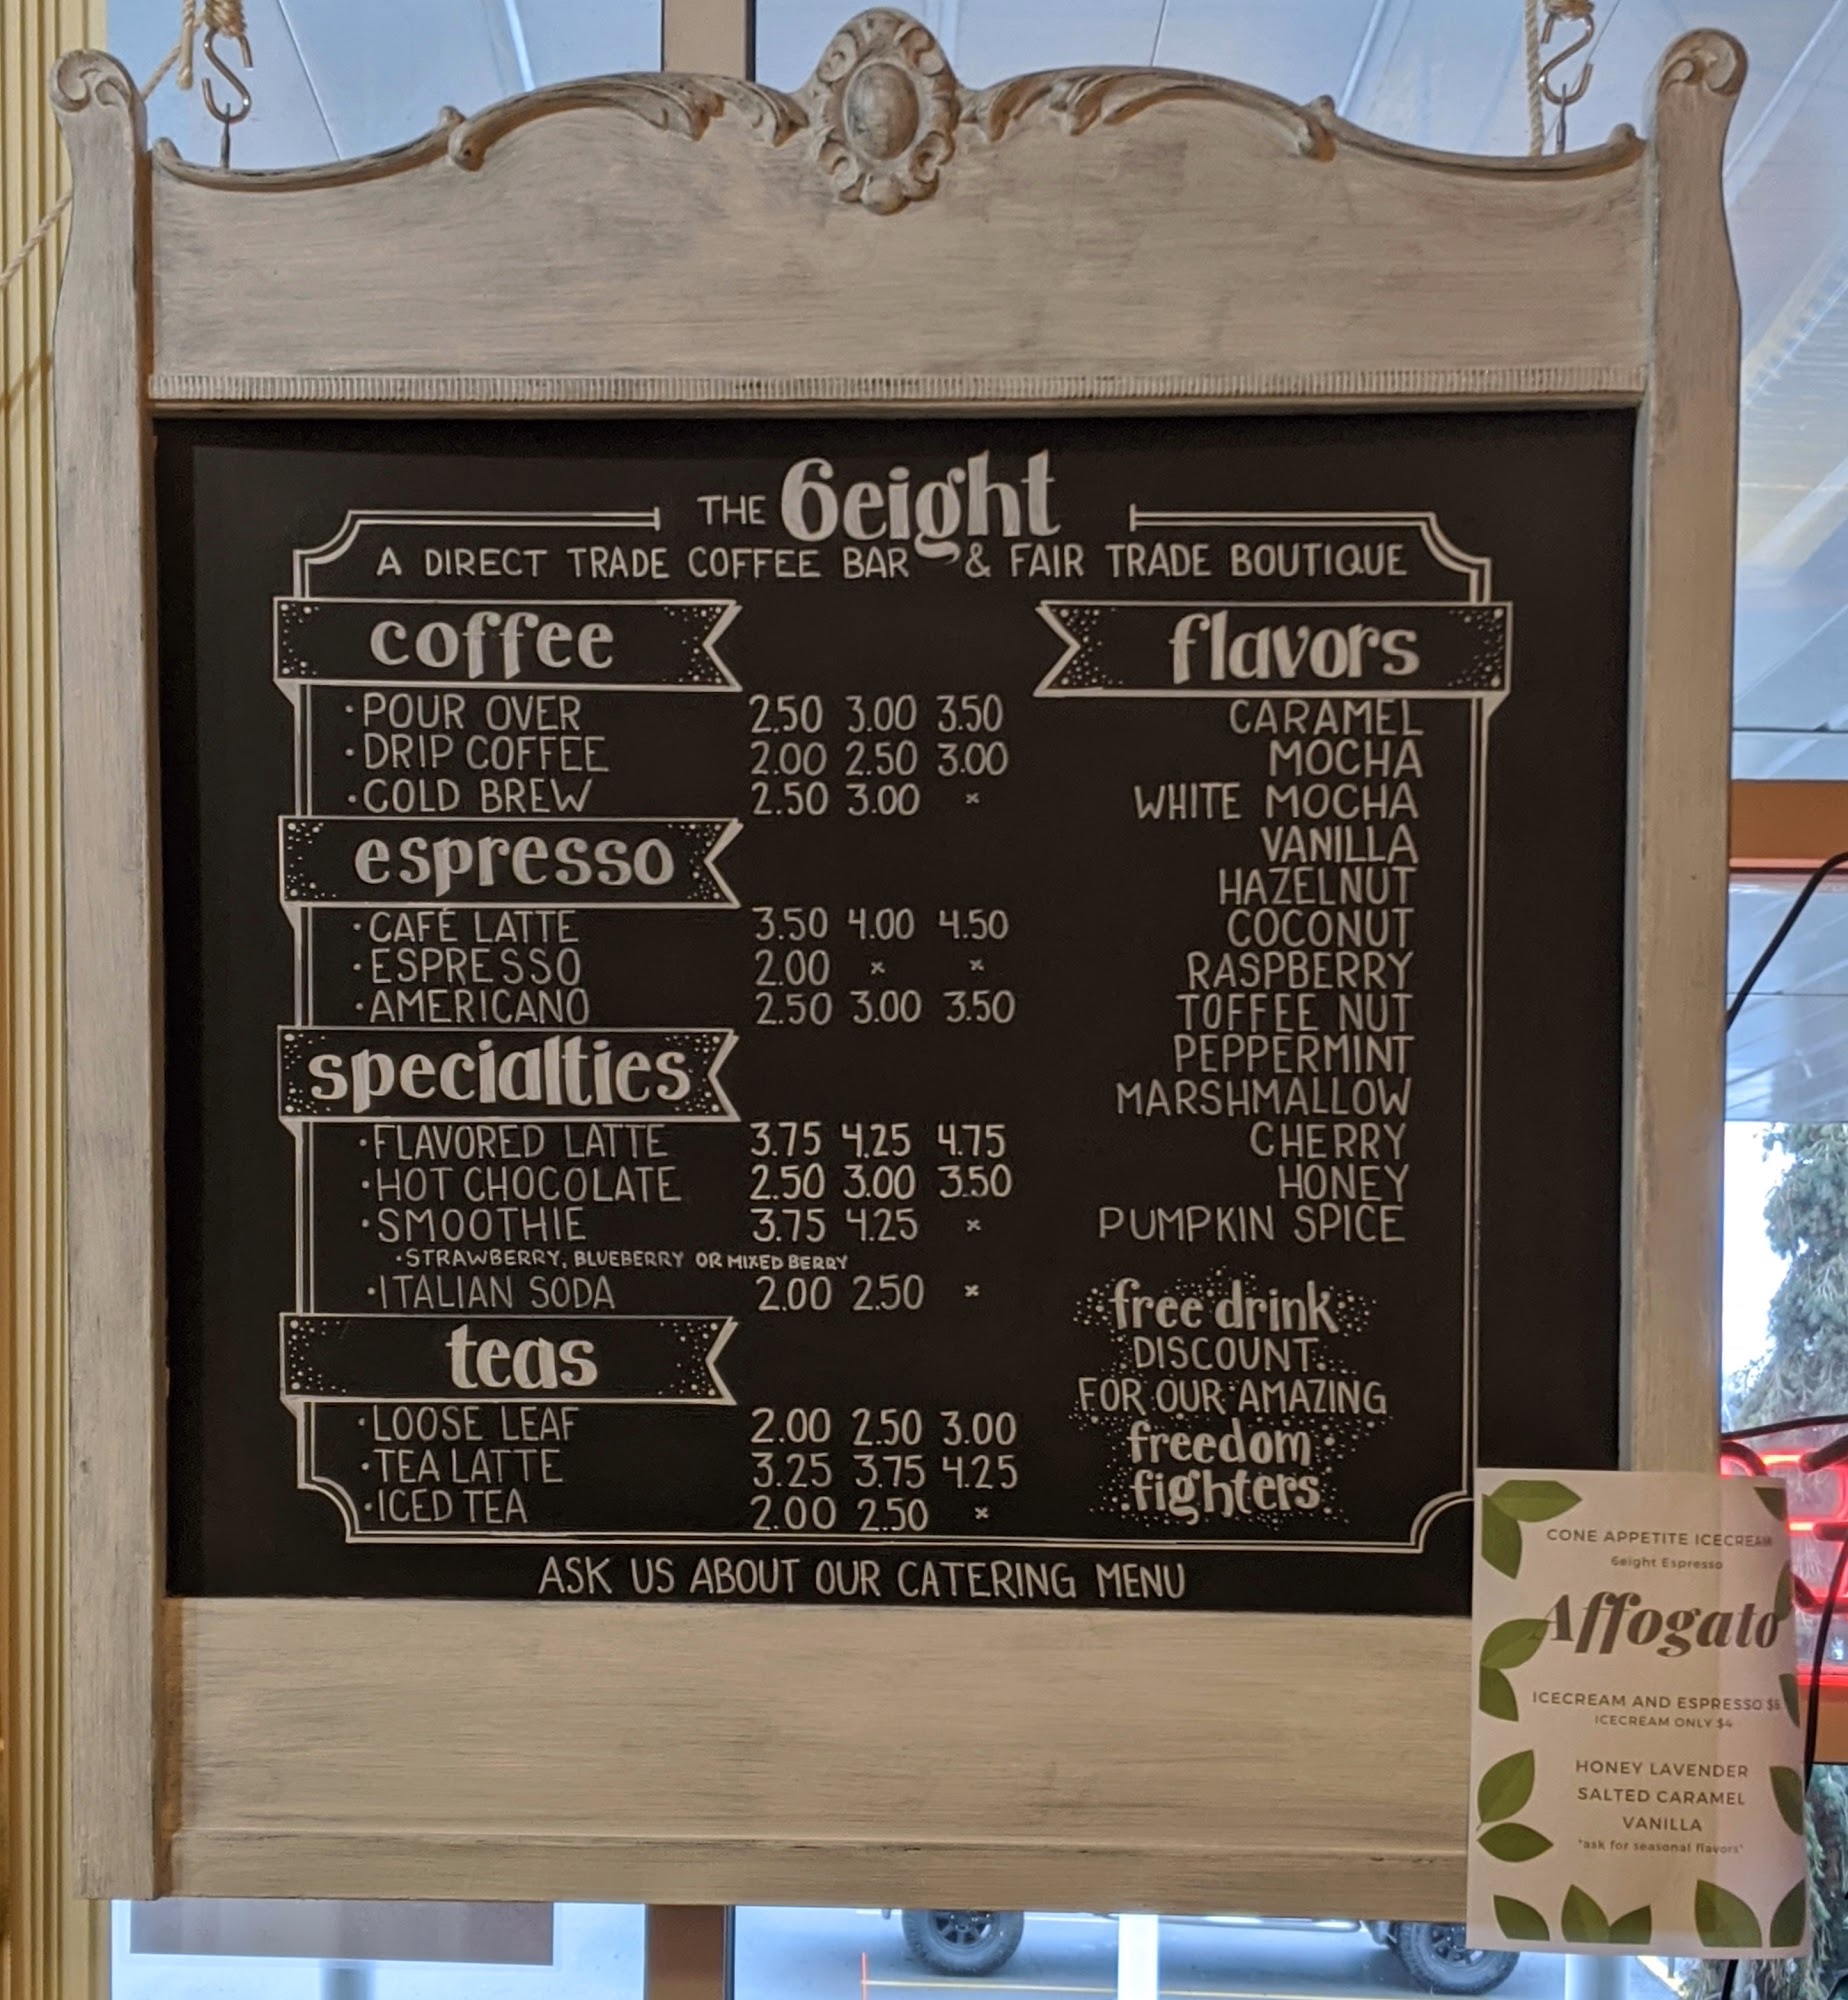 THE 6eight
A DIRECT TRADE COFFEE BAR & FAIR TRADE BOUTIQUE
coffee
· POUR OVER 2.50 3.00 3.50
· DRIP COFFEE 2.00 2.50 3.00
· COLD BREW 2.50 3.00 x
espresso
· CAFÉ LATTE 3.50 4.00 4.50
· ESPRESSO 2.00 x x
· AMERICANO 2.50 3.00 3.50
specialties
· FLAVORED LATTE 3.75 4.25 4.75
· HOT CHOCOLATE 2.50 3.00 3.50
· SMOOTHIE 3.75 4.25 x
· STRAWBERRY, BLUEBERRY OR MIXED BERRY
· ITALIAN SODA 2.00 2.50 x
teas
· LOOSE LEAF 2.00 2.50 3.00
· TEA LATTE 3.25 3.75 4.25
· ICED TEA 2.00 2.50 x
flavors
CARAMEL
MOCHA
WHITE MOCHA
VANILLA
HAZELNUT
COCONUT
RASPBERRY
TOFFEE NUT
PEPPERMINT
MARSHMALLOW
CHERRY
HONEY
PUMPKIN SPICE
free drink
DISCOUNT
FOR OUR AMAZING
freedom
fighters
ASK US ABOUT OUR CATERING MENU
CONE APPETITE ICECREAM
6eight Espresso
Affogato
ICECREAM AND ESPRESSO
ICECREAM ONLY $4
HONEY LAVENDER
SALTED CARAMEL
VANILLA
*ask for seasonal flavors*